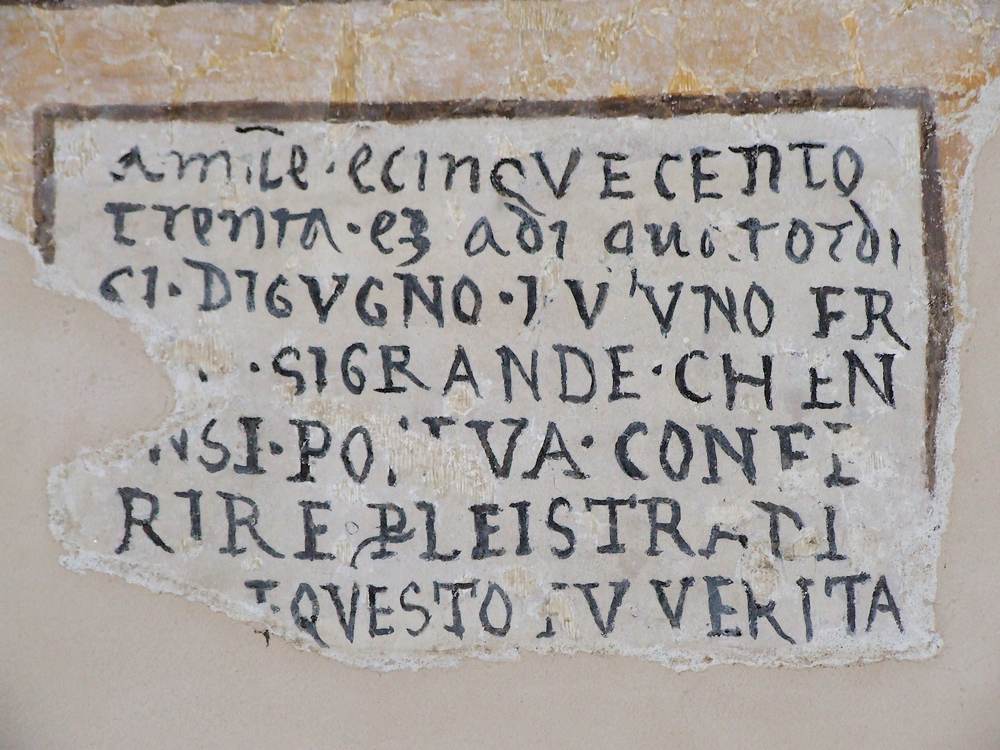 a mile · ecinQVE CENTO
trenta · ez adi quatordi
CI · DI GVGNO · FV VNO FR
· SI GRANDE · CH EN
NSI · POTEVA · CONFE
RIRE PLE ISTRADI
E QVESTO FV VERITA